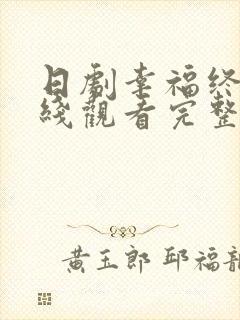 日劇幸福終
綫觀看完整
黃玉郎 邱福龍